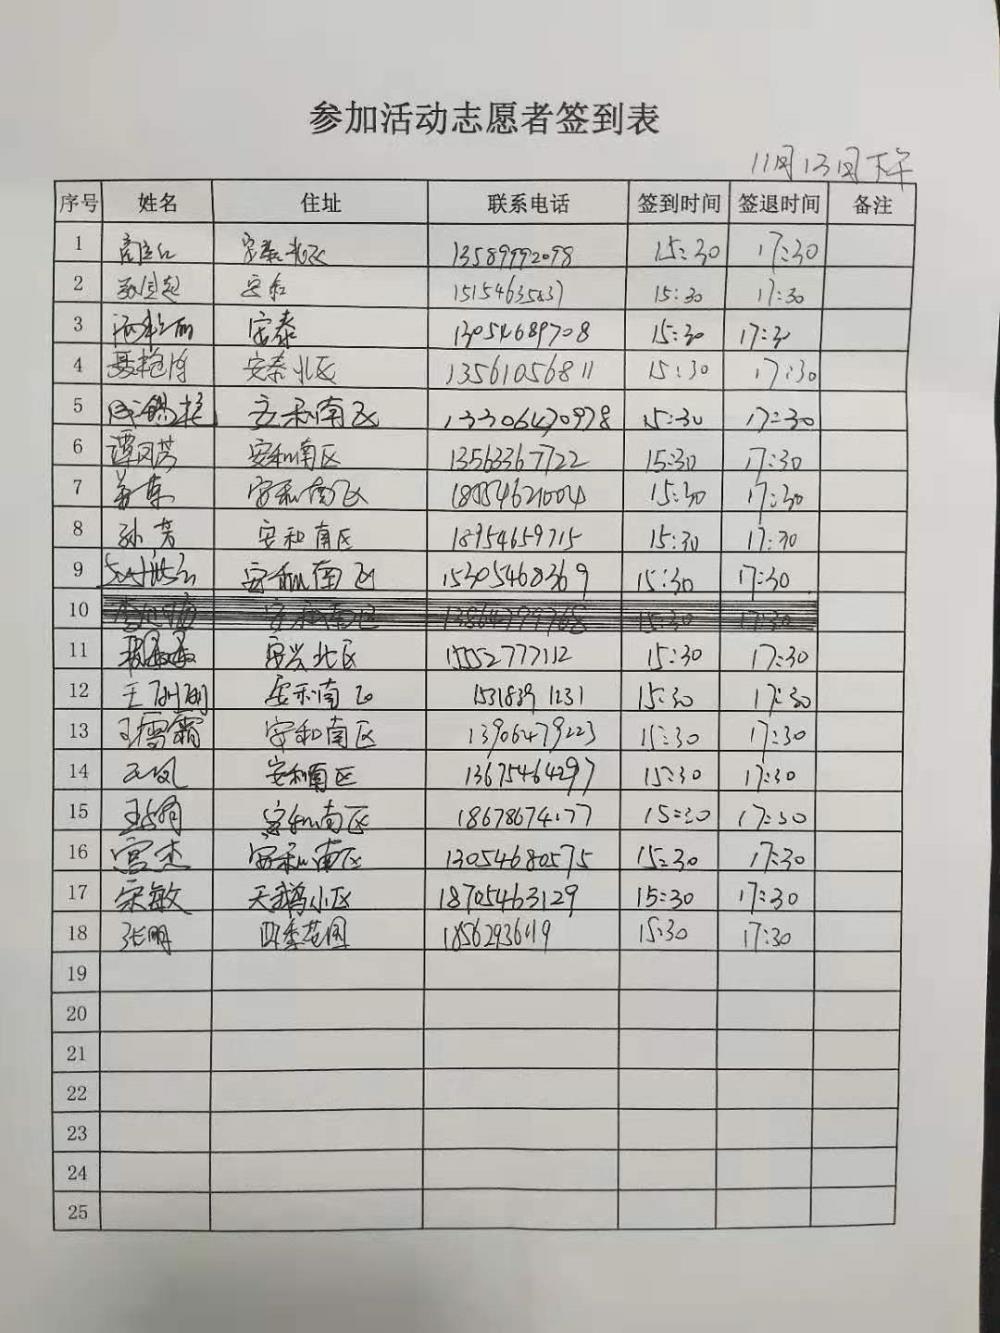 参加活动志愿者签到表
11月13日下午
序号 姓名 住址 联系电话 签到时间 签退时间 备注
1 安泰北区 13589992098 15:30 17:30
2 安和 15154635837 15:30 17:30
3 安泰 13054689708 15:30 17:30
4 安泰北区 13561056811 15:30 17:30
5 安和南区 13306470978 15:30 17:30
6 谭凤芳 安和南区 13563367722 15:30 17:30
7 安和南区 18054621004 15:30 17:30
8 孙芳 安和南区 18954659715 15:30 17:30
9 安和南区 15305468369 15:30 17:30
10
11 安兴北区 15552777112 15:30 17:30
12 王丽丽 安和南区 15318391231 15:30 17:30
13 王雪霜 安和南区 13906479223 15:30 17:30
14 安和南区 13675464297 15:30 17:30
15 安和南区 15:30 17:30
16 宫杰 安和南区 13054680575 15:30 17:30
17 宋敏 天鹅小区 18705463129 15:30 17:30
18 张明 四季花园 15:30 17:30
19
20
21
22
23
24
25